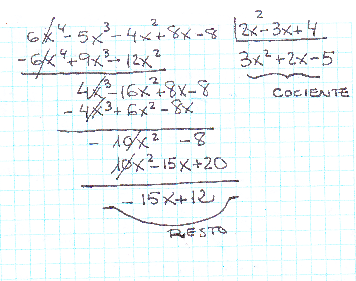 6x⁴ - 5x³ - 4x² + 8x - 8 | 2x² - 3x + 4
- 6x⁴ + 9x³ - 12x² 3x² + 2x - 5
4x³ - 16x² + 8x - 8 COCIENTE
- 4x³ + 6x² - 8x
- 10x² - 8
10x² - 15x + 20
- 15x + 12
RESTO